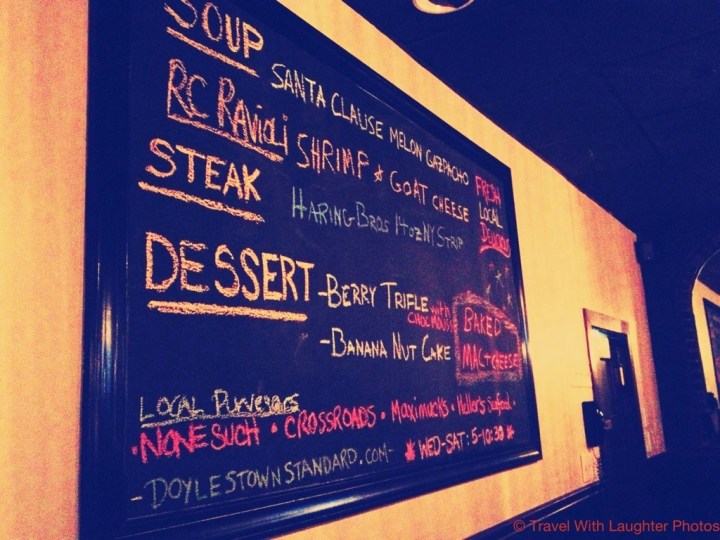 SOUP
SANTA CLAUSE MELON GAZPACHO
RC Ravioli SHRIMP & GOAT CHEESE
FRESH
LOCAL
DELICIOUS
STEAK
HARING BROS 14 oz NY STRIP
DESSERT - BERRY TRIFLE with
CHOC MOUSSE
- BANANA NUT CAKE
BAKED
MAC + CHEESE
LOCAL Purveyors
• NONESUCH • CROSSROADS • Maximucks • Heller's Seafood •
- DOYLESTOWNSTANDARD.COM -
* WED-SAT: 5-10:30 *
© Travel With Laughter Photos